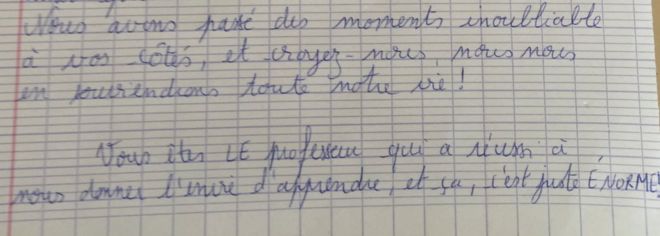 Nous avons passé des moments inoubliable
à vos côtés, et croyez-nous, nous nous
en souviendrons toute notre vie !
Vous êtes LE professeur qui a réussi à
nous donner l'envie d'apprendre, et ça, c'est juste ÉNORME!